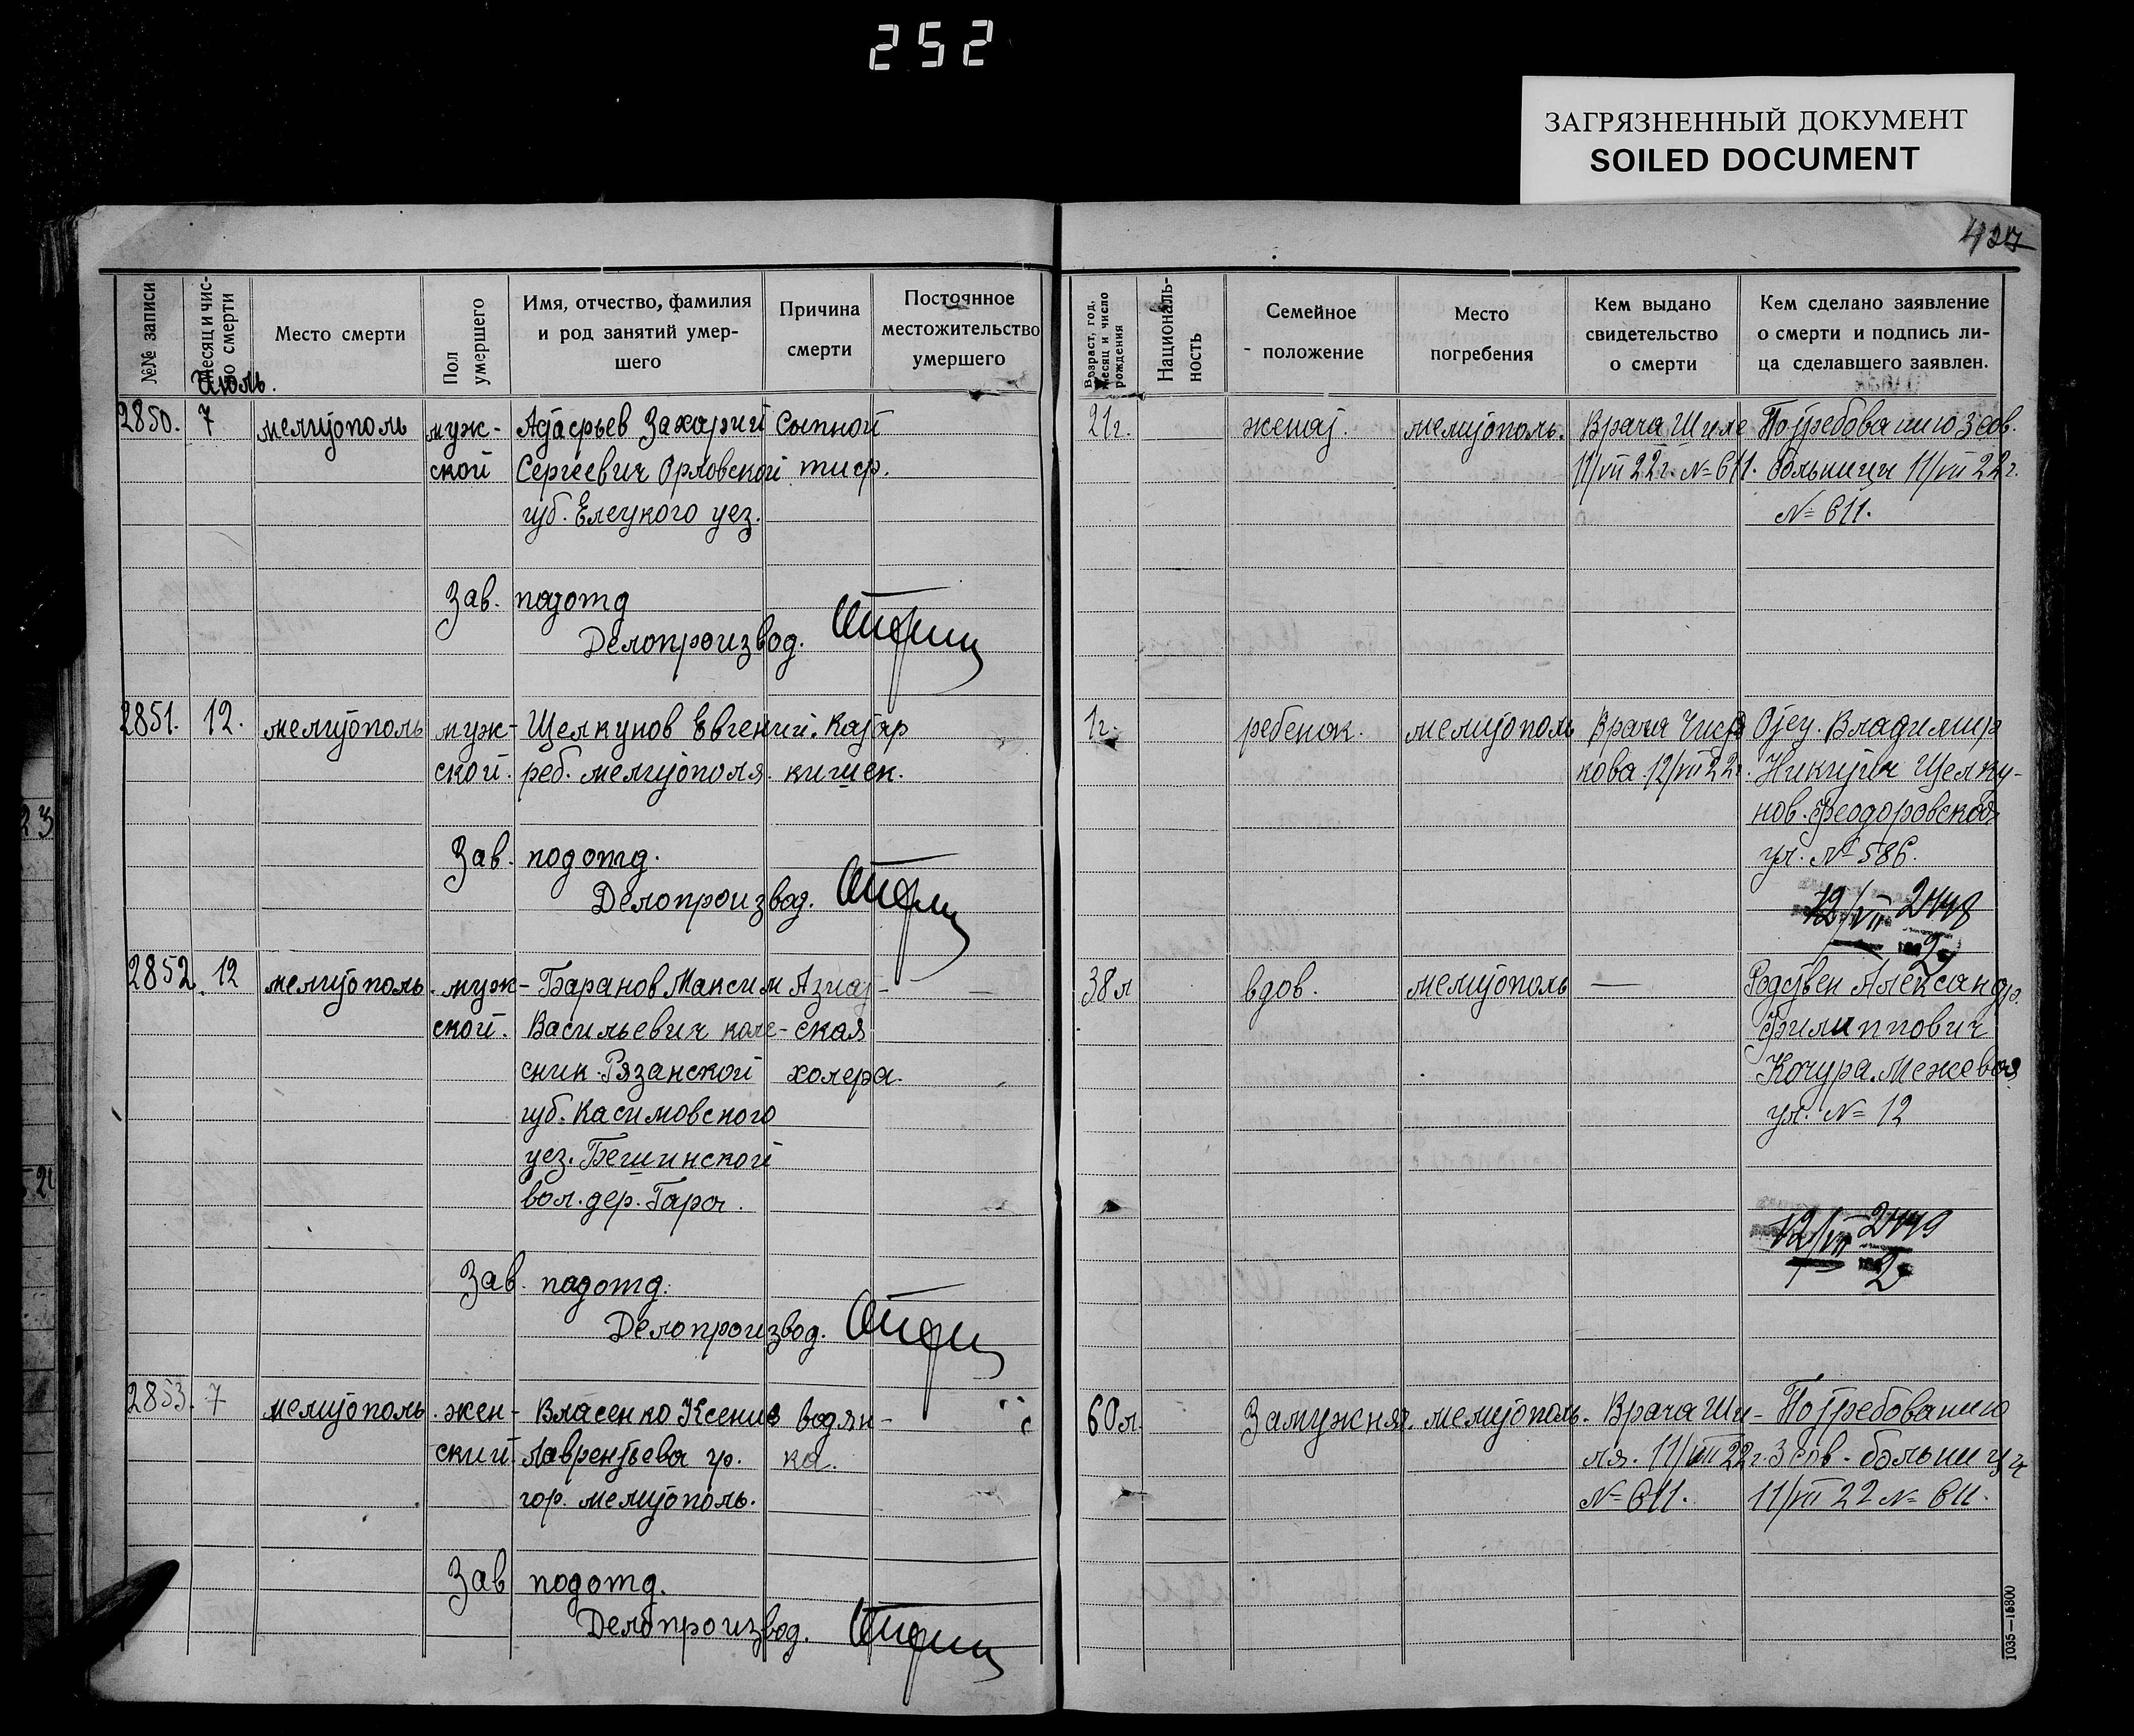 252
ЗАГРЯЗНЕННЫЙ ДОКУМЕНТ
SOILED DOCUMENT
№№ записи
Месяц и чис-
ло смерти
Место смерти
Пол
умершего
Имя, отчество, фамилия
и род занятий умер-
шего
Причина
смерти
Постоянное
местожительство
умершего
Возраст, год,
месяц и число
рождения
Националь-
ность
Семейное
положение
Место
погребения
Кем выдано
свидетельство
о смерти
Кем сделано заявление
о смерти и подпись ли-
ца сделавшего заявлен.
Июль.
2850. 7 мелитополь муж- Захарий Сыпной 21г. женат. мелитополь. Врача Шиле По требованию 3 сов.
ской Сергеевич Орловской тиф. 11/VII 22г. № 611. больницы 11/VII 22г.
губ. Елецкого уез. № 611.
Зав. подотд
Делопроизвод.
2851. 12. мелитополь муж- Щелкунов Евгений. Катар 1г. ребенок. мелитополь Врача Отец. Владимир
ской. реб. мелитополя. кишек. кова 12/VII 22г. Никитич Щелку-
нов. Феодоровская
ул. № 586.
Зав. подотд.
Делопроизвод.
12/VII 2448
2852. 12 мелитополь. муж- Баранов Максим Азиат- 38л вдов. мелитополь — Родствен Александр.
ской. Васильевич коле- ская Филиппович
сник. Рязанской холера. Кочура. Межевая
губ. Касимовского ул. № 12
уез. Бешинской
вол. дер. Гара.
12/VII 2449
2
Зав. подотд.
Делопроизвод.
2853. 7 мелитополь. жен- Власенко Ксения водян- 60л. Замужняя. мелитополь. Врача Ши- По требованию
ский. Лаврентьева гр. ка. ля. 11/VII 22г. 3 сов. больницы
гор. мелитополь. № 611. 11/VII 22 № 611.
Зав подотд.
Делопроизвод.
1035—15300